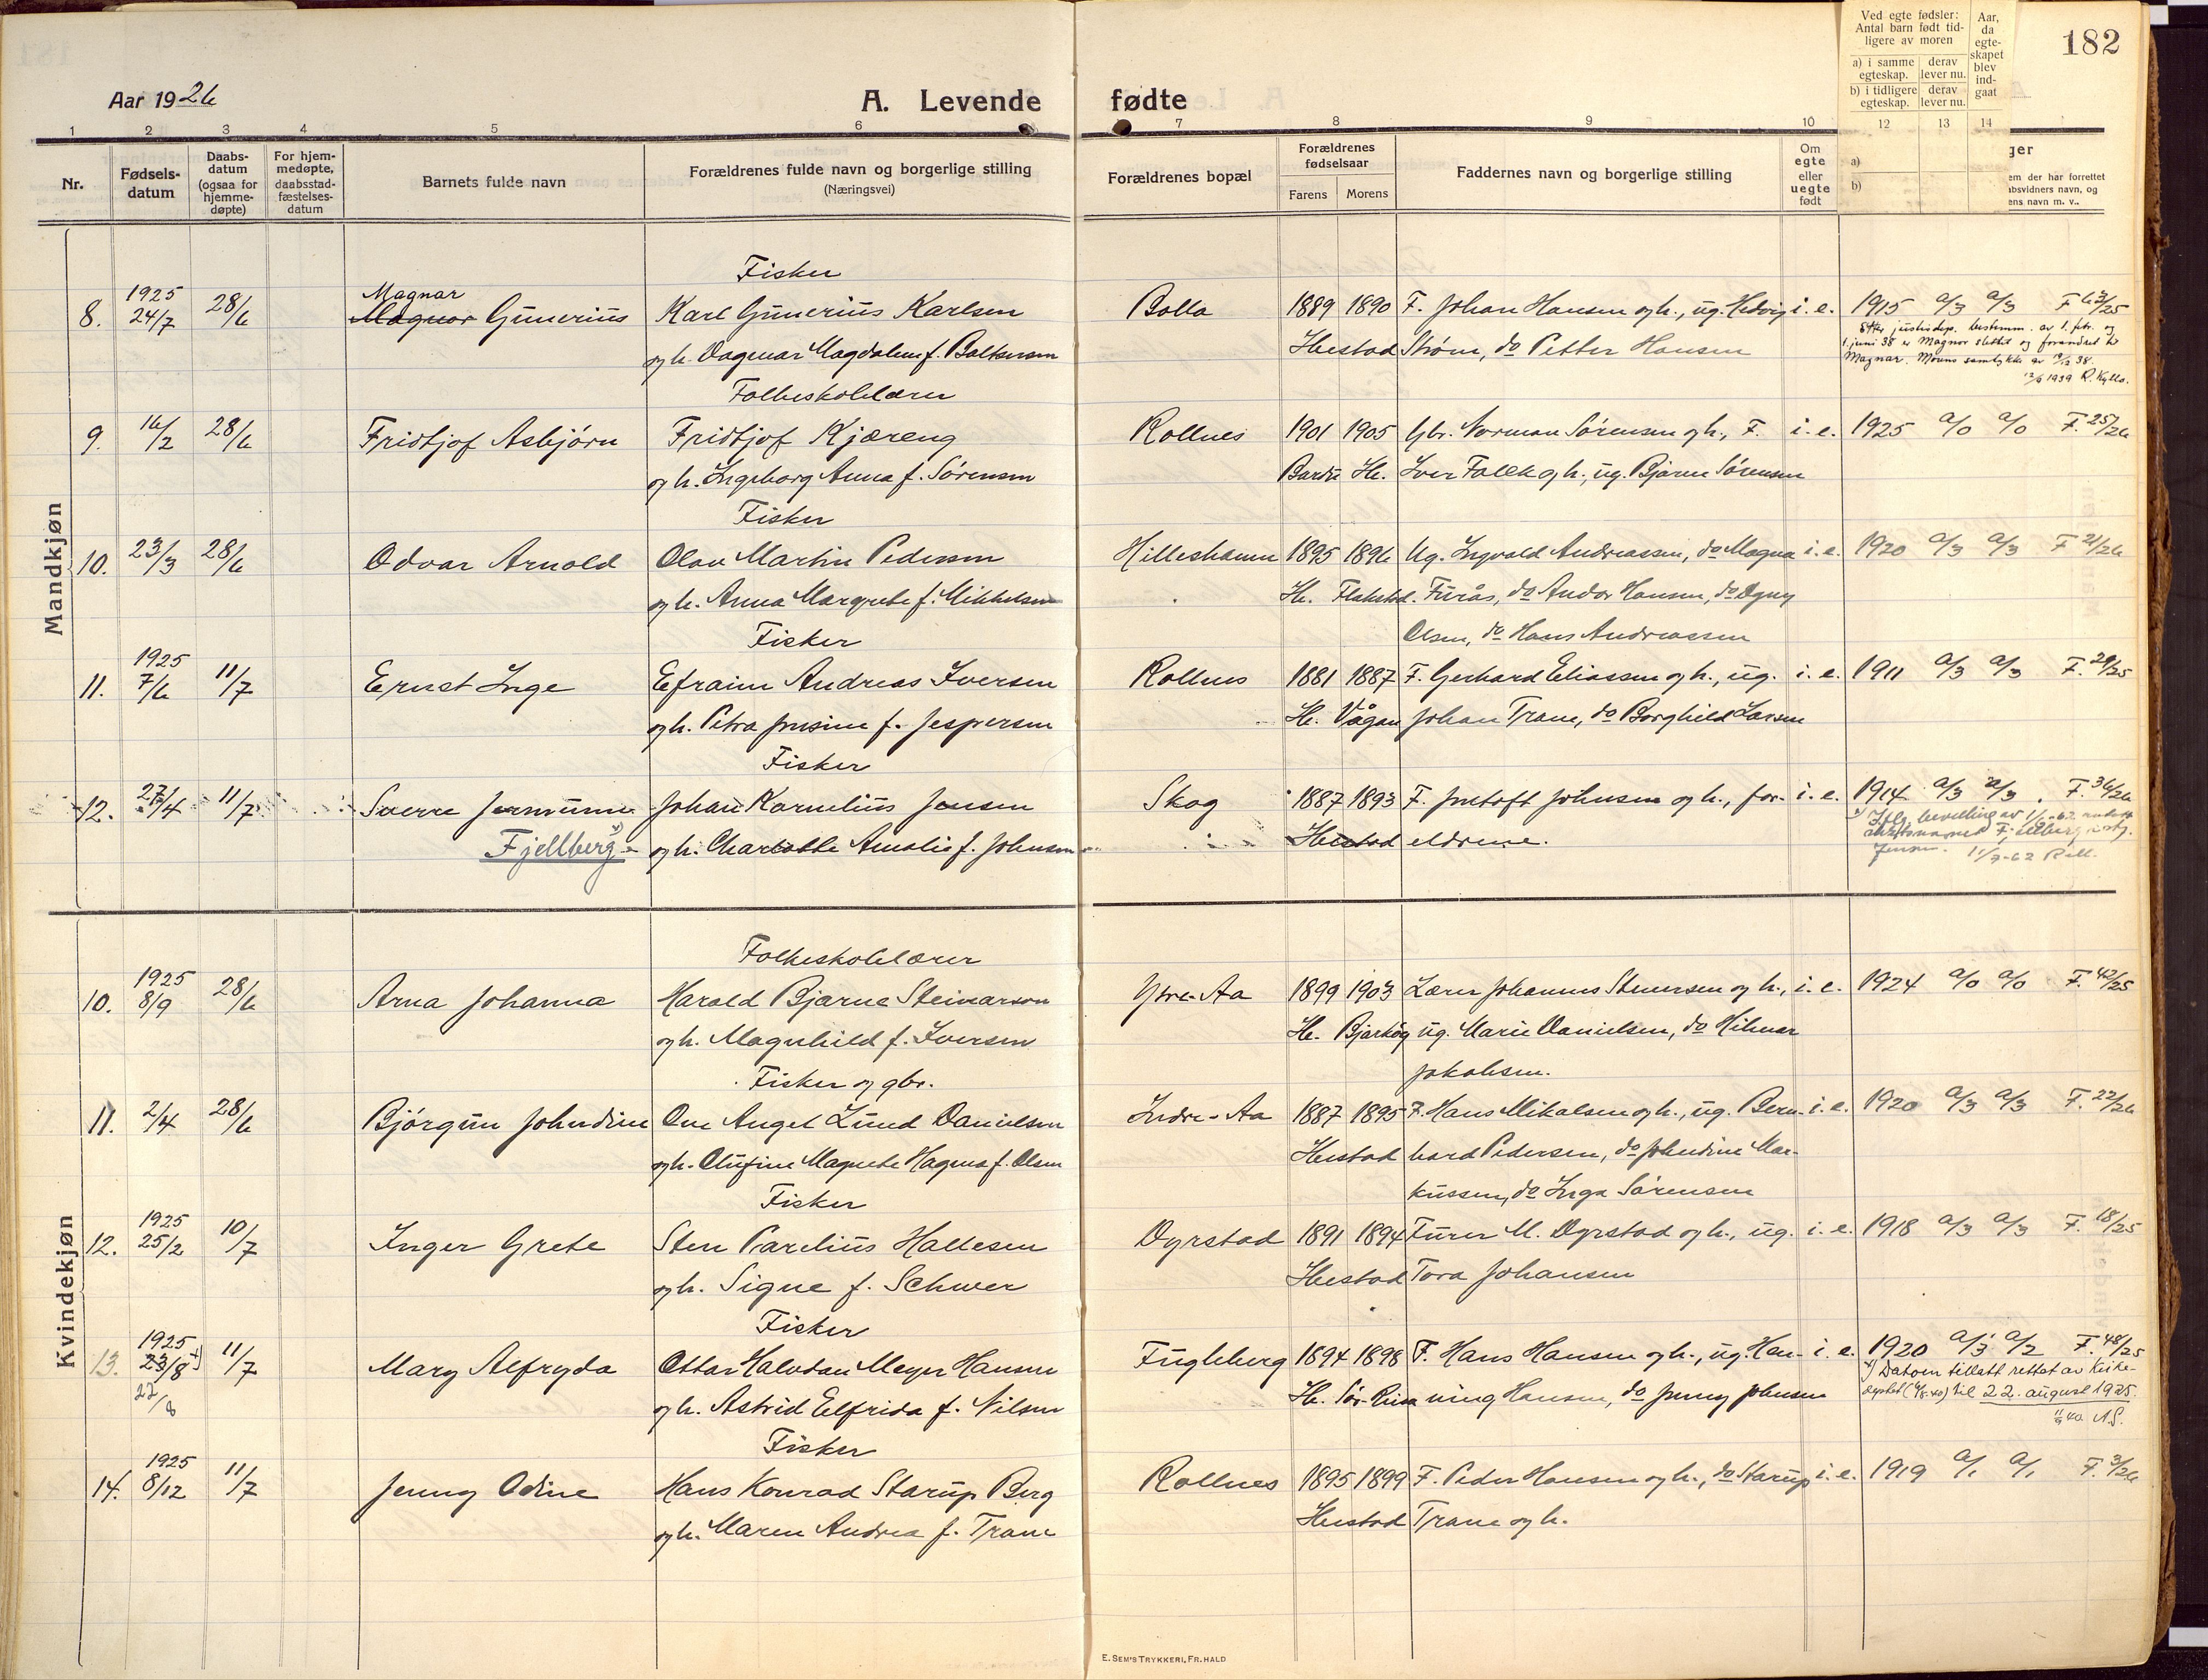 182
Aar 1926
A. Levende fødte
Ved egte fødsler: Antal barn født tidligere av moren
a) i samme egteskap.
derav lever nu.
b) i tidligere egteskap.
derav lever nu.
Aar, da egteskapet blev indgaat
1 2 3 4 5 6 7 8 9 10 12 13 14
Nr.
Fødselsdatum
Daabsdatum (ogsaa for hjemmedøpte)
For hjemmedøpte, daabsstadfæstelsesdatum
Barnets fulde navn
Forældrenes fulde navn og borgerlige stilling
(Næringsvei)
Forældrenes bopæl
Forældrenes fødselsaar
Farens Morens
Faddernes navn og borgerlige stilling
Om egte eller uegte født
a)
b)
ger
em der har forrettet
bsvidners navn, og
ens navn m. v..
Mandkjøn
Fisker
8. 1925 24/7 28/6 Magnar
Magnor Gunerius Karl Gunerius Karlsen Bolla 1889 1890 F. Johan Hansen og h., ug. Hedvig i. e. 1915 a/3 a/3
og h. Dagmar Magdalene f. Baltsersen Ibestad Strøm, do Petter Hansen
Etter justisdep. bestemm. av 1. febr. og
1. juni 38 er Magnor slettet og forandret til
Magnar. Morens samtykke av 19/12 38.
12/6 1939 R. Kyllo.
Folkeskolelærer
9. 16/2 28/6 Fridtjof Asbjørn Fridtjof Kjæreng Rollnes 1901 1905 Gbr. Norman Sørensen og h., F. i. e. 1925 a/0 a/0 F. 25/26
og h. Ingeborg Anna f. Sørensen Bardu Ib. Iver Falck og h., ug. Bjarne Sørensen
Fisker
10. 23/3 28/6 Odvar Arnold Olav Martin Pedersen Hilleshamn 1895 1896 Ug. Ingvald Andreassen, do Magna i. e. 1920 a/3 a/3 F 21/26
og h. Anna Margrete f. Mikkelsen Ib. Flakstad. Furås, do Andor Hansen, do Dgny
Olsen, do Hans Andreassen
Fisker
11. 1925 7/6 11/7 Ernst Inge Efraim Andreas Iversen Rollnes 1881 1887 F. Gerhard Eliassen og h., ug. i. e. 1911 a/3 a/3 F. 29/25
og h. Petra Jensine f. Jespersen Ib. Vågan Johan Trane, do Borghild Larsen
Fisker
12. 27/4 11/7 Sverre Jermunn Johan Kornelius Jensen Skog 1887 1893 F. Jentoft Johnsen og h., for- i. e. 1914 a/3 a/3 F. 36/26
Fjellberg og h. Charlotte Amalie f. Johnsen Ibestad eldrene.
Jensen. 11/7-62
Kvindekjøn
Folkeskolelærer
10. 1925 8/9 28/6 Arna Johanna Harald Bjarne Steinarson Ytre-Aa 1899 1903 Lærer Johannes Stenersen og h., i. e. 1924 a/0 a/0 F. 42/25
og h. Magnhild f. Iversen Ib. Bjarkøy ug. Marie Danielsen, do Hilmar
Jakobsen.
Fisker og gbr.
11. 2/4 28/6 Bjørgun Johndine Ove Angel Lund Danielsen Indre-Aa 1887 1895 F. Hans Mikalsen og h., ug. Bern- i. e. 1920 a/3 a/3 F. 22/26
og h. Olufine Magnete Hagnes f. Olsen Ibestad hard Pedersen, do Johndine Mar-
kussen, do Inga Sørensen
Fisker
12. 1925 25/2 10/7 Inger Grete Sten Parelius Hallesen Dyrstad 1891 1894 Furer M. Dyrstad og h., ug. i. e. 1918 a/3 a/3 F. 18/25
og h. Signe f. Schwer Ibestad Tora Johansen
Fisker
13. 1925 23/8 11/7 Mary Alfryda Ottar Halvdan Meyer Hansen Fugleberg 1894 1898 F. Hans Hansen og h., ug. Hen- i. e. 1920 a/3 a/2 F. 48/25
22/8 og h. Astrid Elfrida f. Nilsen Ib. Sør-Reisa ning Hansen, do Jenny Johnsen
x) Datoen tillatt rettet av Kirke-
dep'tet til 22. august 1925.
Fisker
14. 1925 8/12 11/7 Jenny Odine Hans Konrad Starup Berg Rollnes 1895 1899 F. Peder Hansen og h., do Starup i. e. 1919 a/1 a/1 F. 3/26
og h. Maren Andrea f. Trane Ibestad Trane og h.
E. SEM'S TRYKKERI, FR.HALD